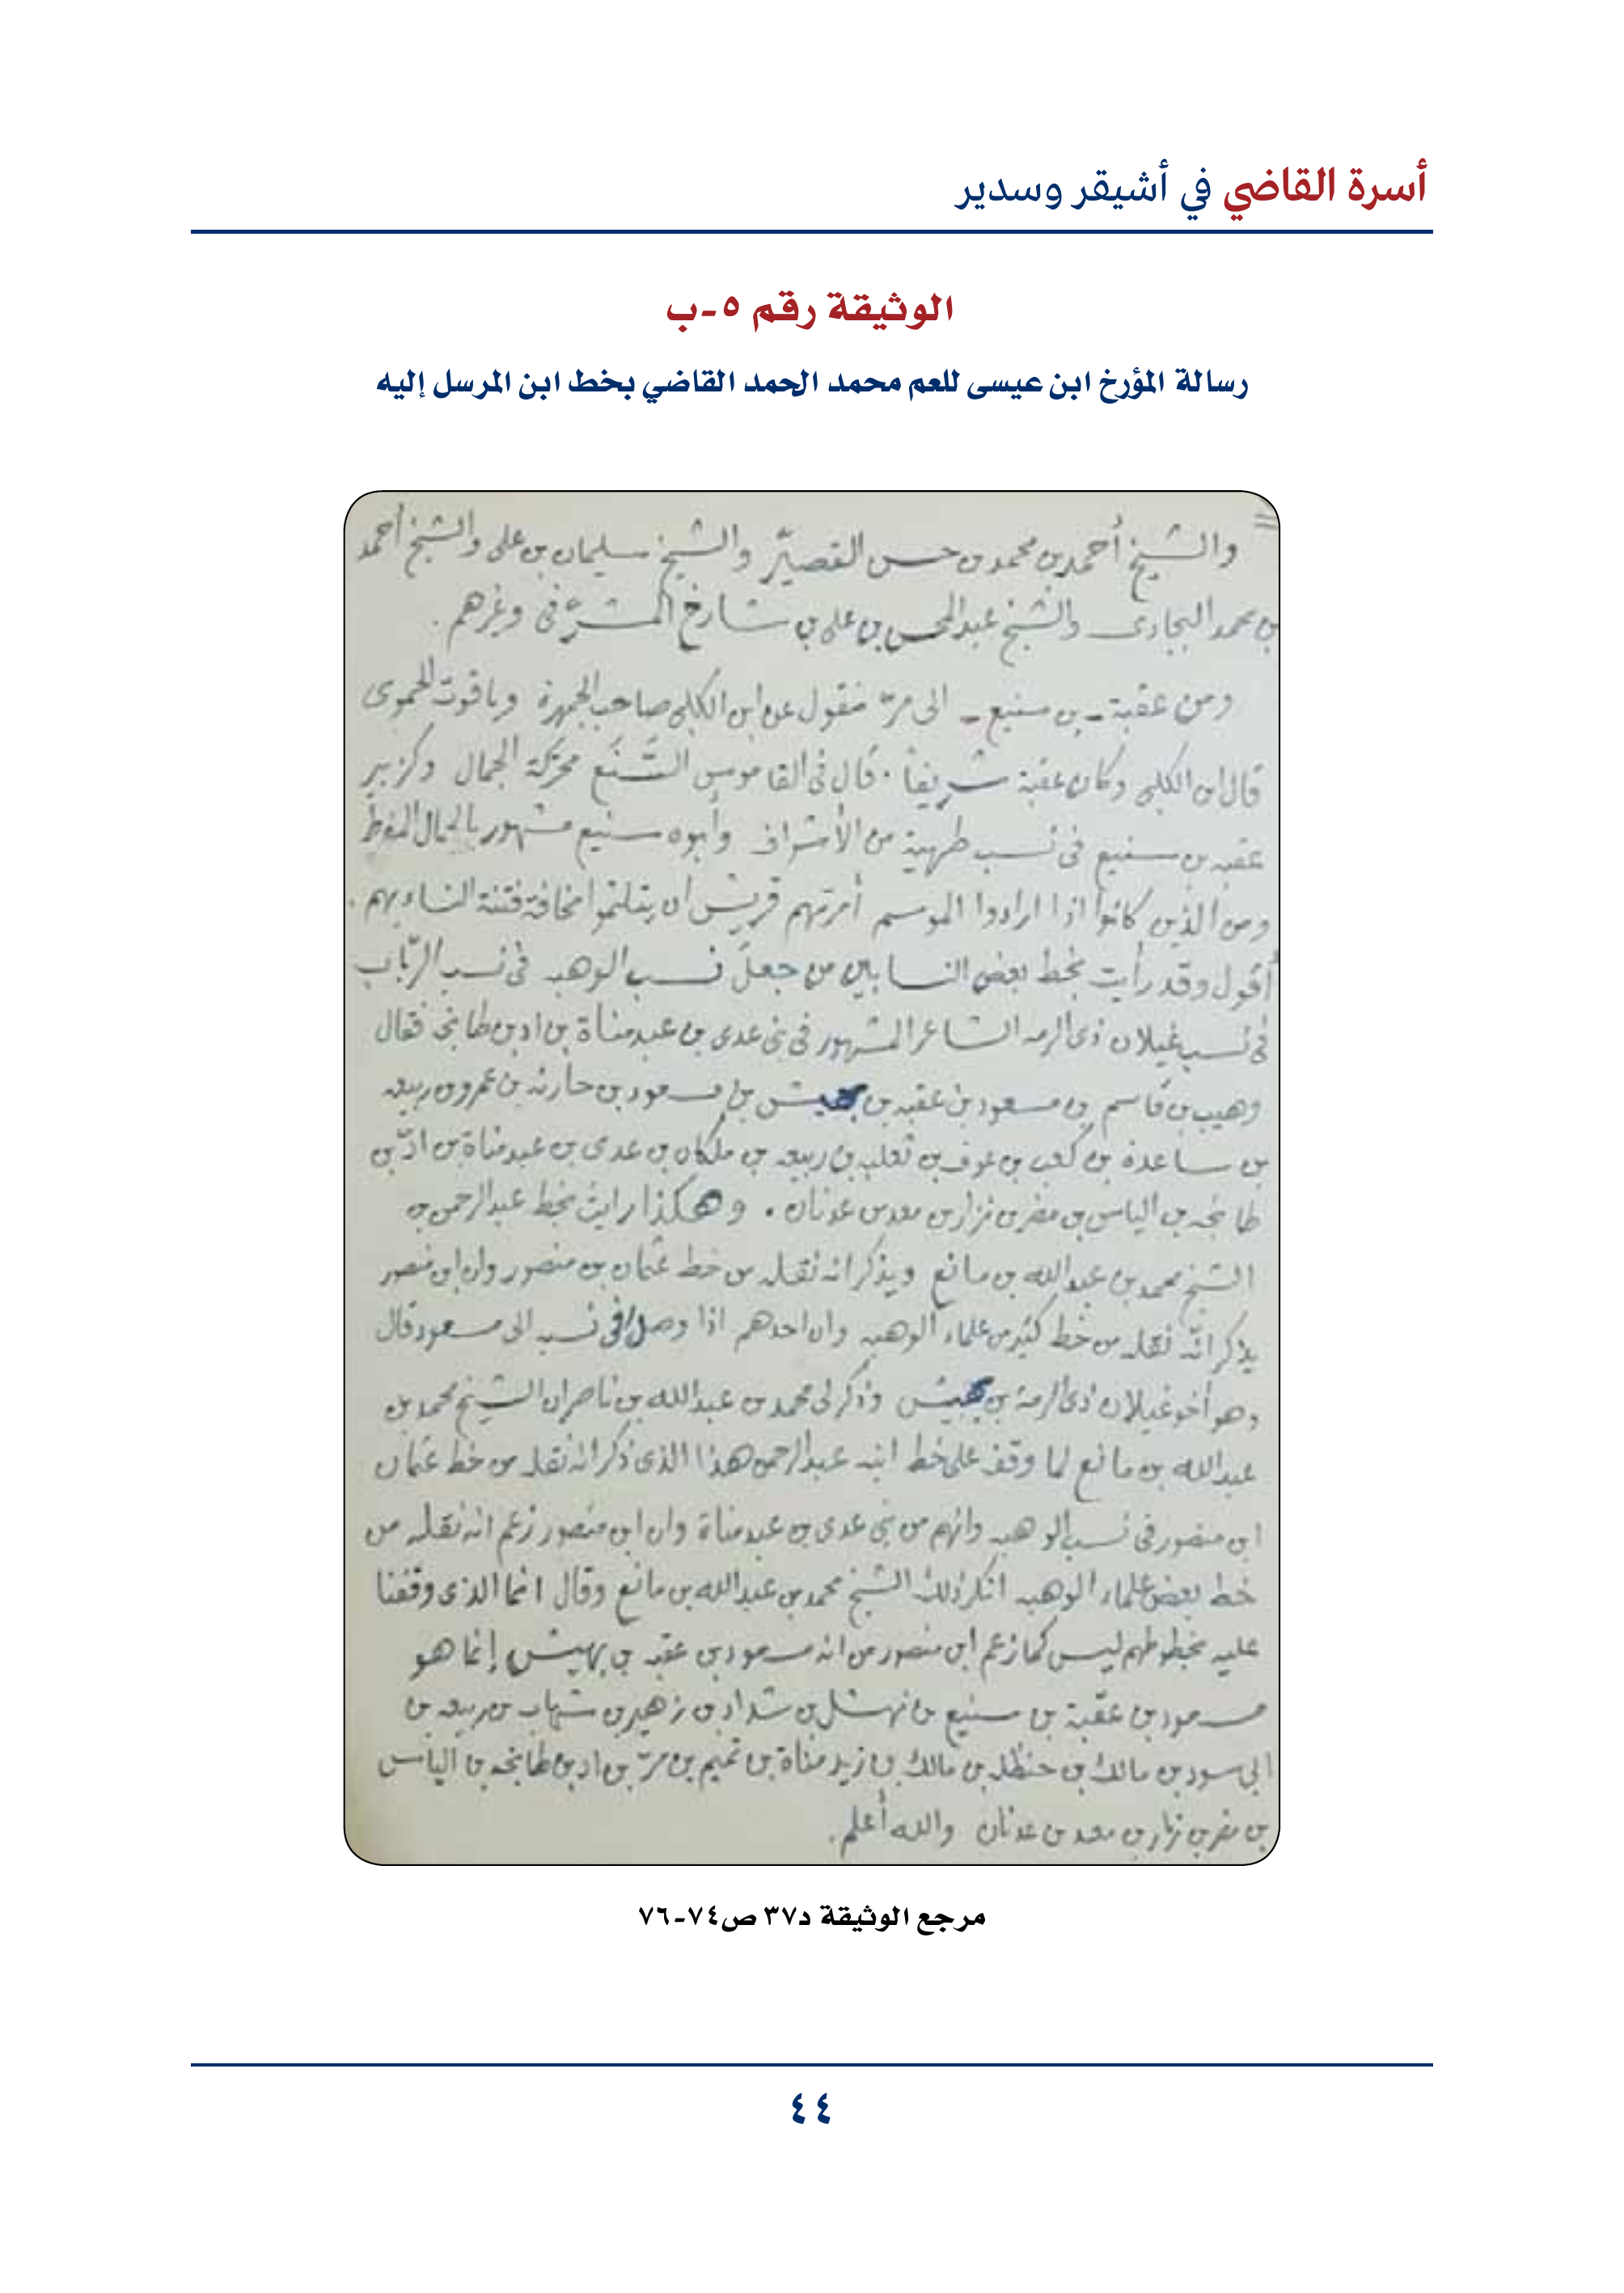 أسرة القاضي في أشيقر وسدير
الوثيقة رقم ٥-ب
رسالة المؤرخ ابن عيسى للعم محمد الحمد القاضي بخط ابن المرسل إليه
والشيخ أحمد بن محمد بن حسن القصيّر والشيخ سليمان بن على والشيخ أحمد
بن محمد البجادى والشيخ عبدالمحسن بن على بن شارخ المشرّفى وغيرهم .
ومن عقبة - بن سنيع - الى مرّ منقول عن ابن الكلبى صاحب الجمهرة وياقوت الحموى
قال ابن الكلبى وكان عقبة شريفاً . قال فى القاموس السَّنَع محرّكة الجمال وكزبير
عقبه بن سنيع فى نسب طهية من الأشراف وأبوه سنيع مشهور بالجمال المفرط
ومن الذين كانوا اذا ارادوا الموسم أمرتهم قريش ان يتلثموا مخافة فتنة النساء بهم .
أقول وقد رأيت بخط بعض النسابين من جعل نسب الوهبه فى نسب الرّباب
فى نسب غيلان ذى الرمه الشاعر المشهور فى بنى عدى بن عبد مناة بن اد بن طابخه فقال
وهيب بن قاسم بن مسعود بن عقبه بن بهيش بن مسعود بن حارثه بن عمرو بن ربيعه
بن ساعدة بن كعب بن عوف بن ثعلبه بن ربيعه بن ملكان بن عدى بن عبد مناة بن ادّ بن
طابخه بن الياس بن مضر بن نزار بن معد بن عدنان . وهكذا رايت بخط عبدالرحمن بن
الشيخ محمد بن عبدالله بن مانع ويذكر انه نقله من خط عثمان بن منصور وان ابن منصور
يذكر انّه نقله من خط كثير من علماء الوهبه وان احدهم اذا وصل فى نسبه الى مسعود قال
وهو أخو غيلان ذى الرمة بن بهيش وذكر لى محمد بن عبدالله بن ناصر ان الشيخ محمد بن
عبدالله بن مانع لما وقف على خط ابنه عبدالرحمن هذا الذى ذكر انه نقله من خط عثمان
ابن منصور فى نسب الوهبه وانهم من بنى عدى بن عبد مناة وان ابن منصور زعم انه نقله من
خط بعض علماء الوهبه انكر ذلك الشيخ محمد بن عبدالله بن مانع وقال انما الذى وقفنا
عليه بخطوطهم ليس كما زعم ابن منصور من انه مسعود بن عقبه بن بهيش إنما هو
مسعود بن عقّبة بن سنيع بن نهشل بن شداد بن زهير بن شهاب بن ربيعه بن
ابى سود بن مالك بن حنظله بن مالك بن زيد مناة بن تميم بن مرّ بن اد بن طابخه بن الياس
بن مضر بن نزار بن معد بن عدنان والله أعلم .
مرجع الوثيقة د٣٧ ص٧٤-٧٦
٤٤